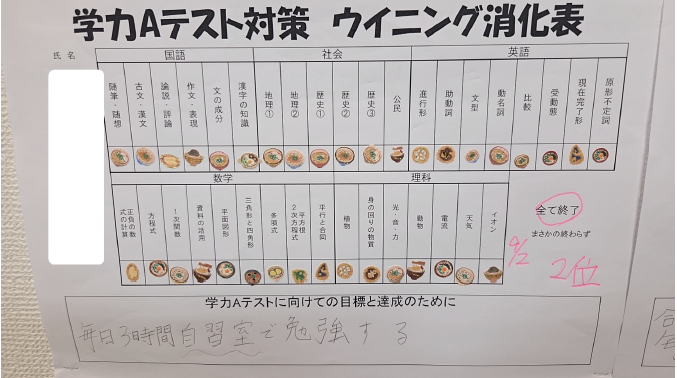 学力Aテスト対策 ウイニング消化表
氏名
国語 社会 英語
随筆・随想 古文・漢文 論説・評論 作文・表現 文の成分 漢字の知識 地理① 地理② 歴史① 歴史② 歴史③ 公民 進行形 助動詞 文型 動名詞 比較 受動態 現在完了形 原形不定詞
数学 理科
正負の数 式の計算 方程式 1次関数 資料の活用 平面図形 三角形と四角形 多項式 平方根 2次方程式 平行と合同 植物 身の回りの物質 光・音・力 動物 電流 天気 イオン
全て終了
まさかの終わらず
9/2 2位
学力Aテストに向けての目標と達成のために
毎日3時間自習室で勉強する